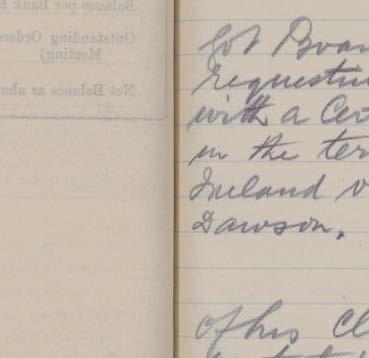 Balance per Bank
Outstanding Orders
Meeting)
Net Balance as abov
Got Boar
requestin
with a Cer
in the ter
Ireland v
Dawson.
of his Cl